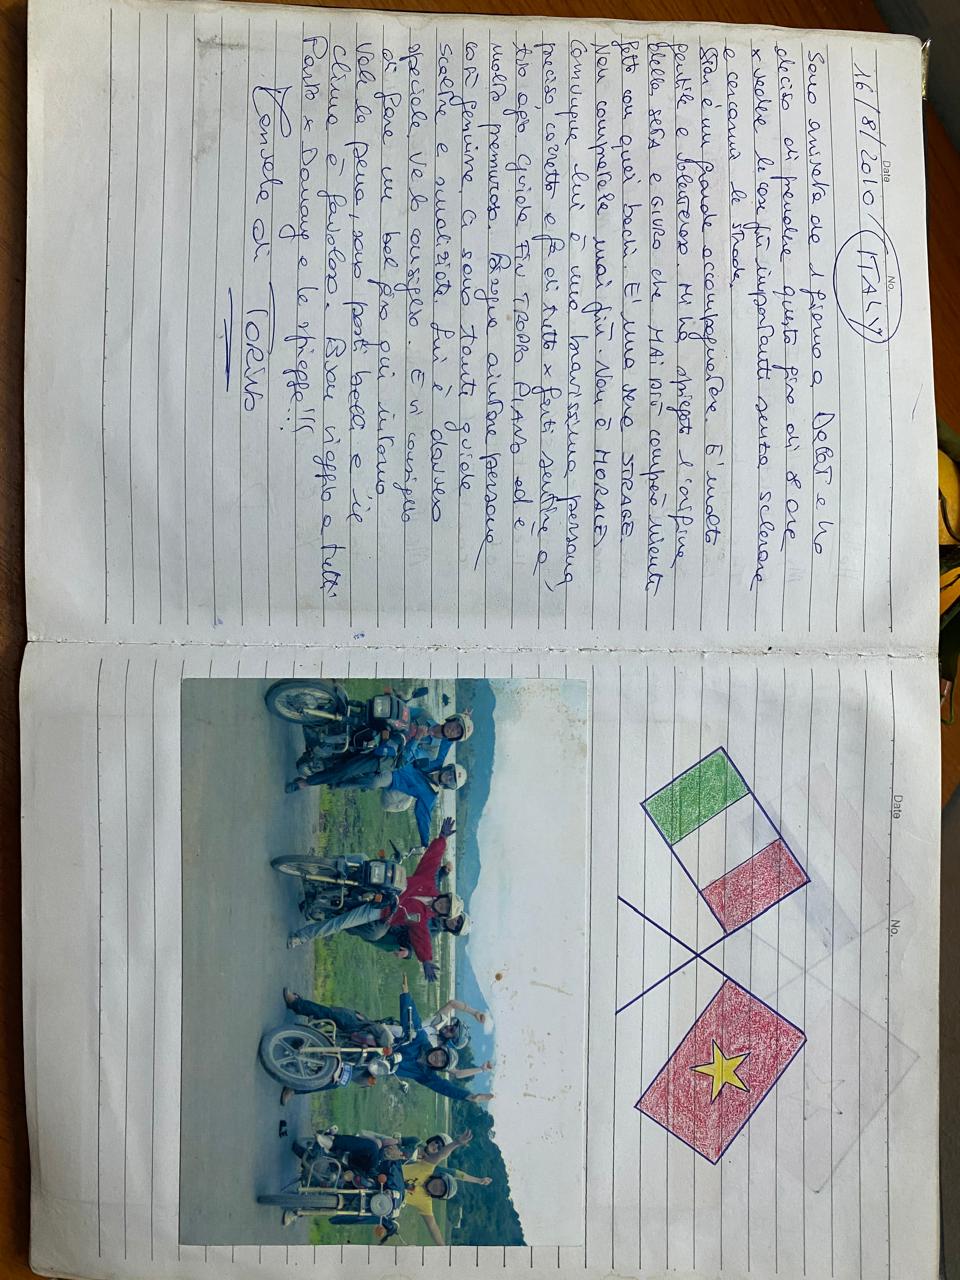 Date No.
16/8/2010/ ITALY
Sono arrivata da 1 giorno a DALAT e ho
deciso di prendere questo giro di 8 ore
x vedere le cose più importanti senza sclerare
e cercarmi le strade.
è un grande accompagnatore. E' molto
gentile e volenteroso. Mi ha spiegato l'origine
della seta e GIURO che MAI PIÙ comprerò niente
fatto con quei bachi. E' una vera STRAGE.
Non comperatela mai più. Non è MORALE,
Comunque lui è una bravissima persona,
preciso, corretto e fa di tutto x farti sentire a
tuo agio. Guida FIN TROPPO PIANO ed è
molto premuroso. Bisogna aiutare persone
così genuine, ci sono tante guide
scaltre e smaliziate lui è davvero
speciale. Ve lo consiglio. E vi consiglio
di fare un bel giro qui intorno
Vale la pena, sono posti belli e il
clima è favoloso. Buon viaggio a tutti
Parto x Danang e le spiagge!!!
di TORINO
Date No.